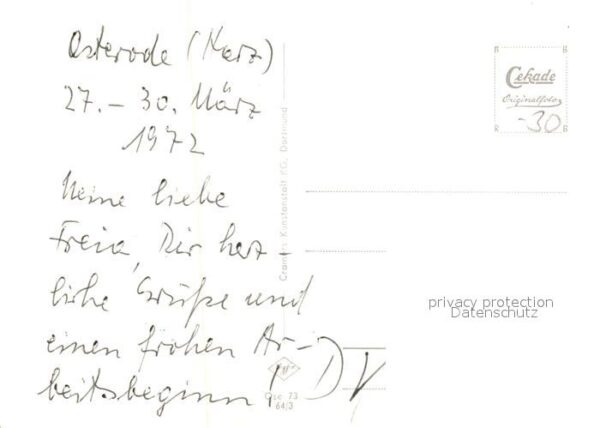 Osterode (Harz)
27. – 30. März
1972
Meine liebe
Freia, Dir herz-
liche Grüße und
einen frohen Ar-
beitsbeginn!
DV
Cramers Kunstanstalt KG, Dortmund
Agfa
Ose 73
64/3
Cekade
Originalfoto
-30
privacy protection
Datenschutz